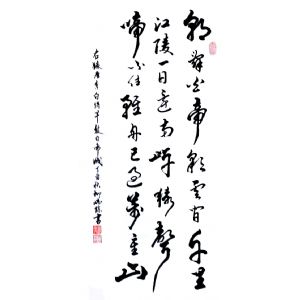 朝辭白帝彩雲間千里
江陵一日還兩岸猿聲
啼不住輕舟已過萬重山
右錄唐李白詩早發白帝城 秋柳 書